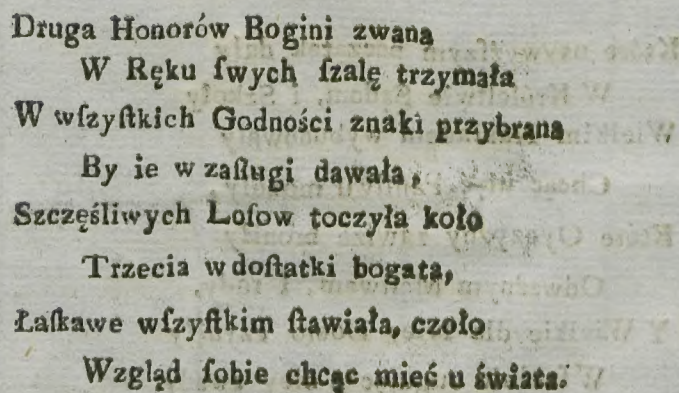 Druga Honorów Bogini zwaną
W Ręku ſwych ſzalę trzymała
W wſzyſtkich Godności znaki przybrana
By ie w zaſługi dawała,
Szczęśliwych Loſow toczyła koło
Trzecia w doſtatki bogata,
Łaſkawe wſzyſtkim ſtawiała, czoło
Wzgląd ſobie chcąc mieć u świata.